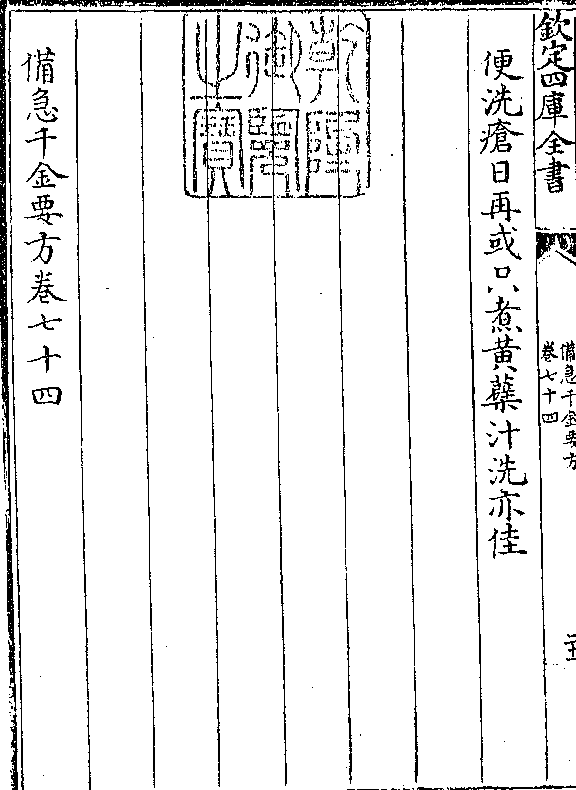 欽定四庫全書
備急千金要方
卷七十四
便洗瘡日再或只煮黄蘗汁洗亦佳
乾隆
御覽
之寶
備急千金要方卷七十四